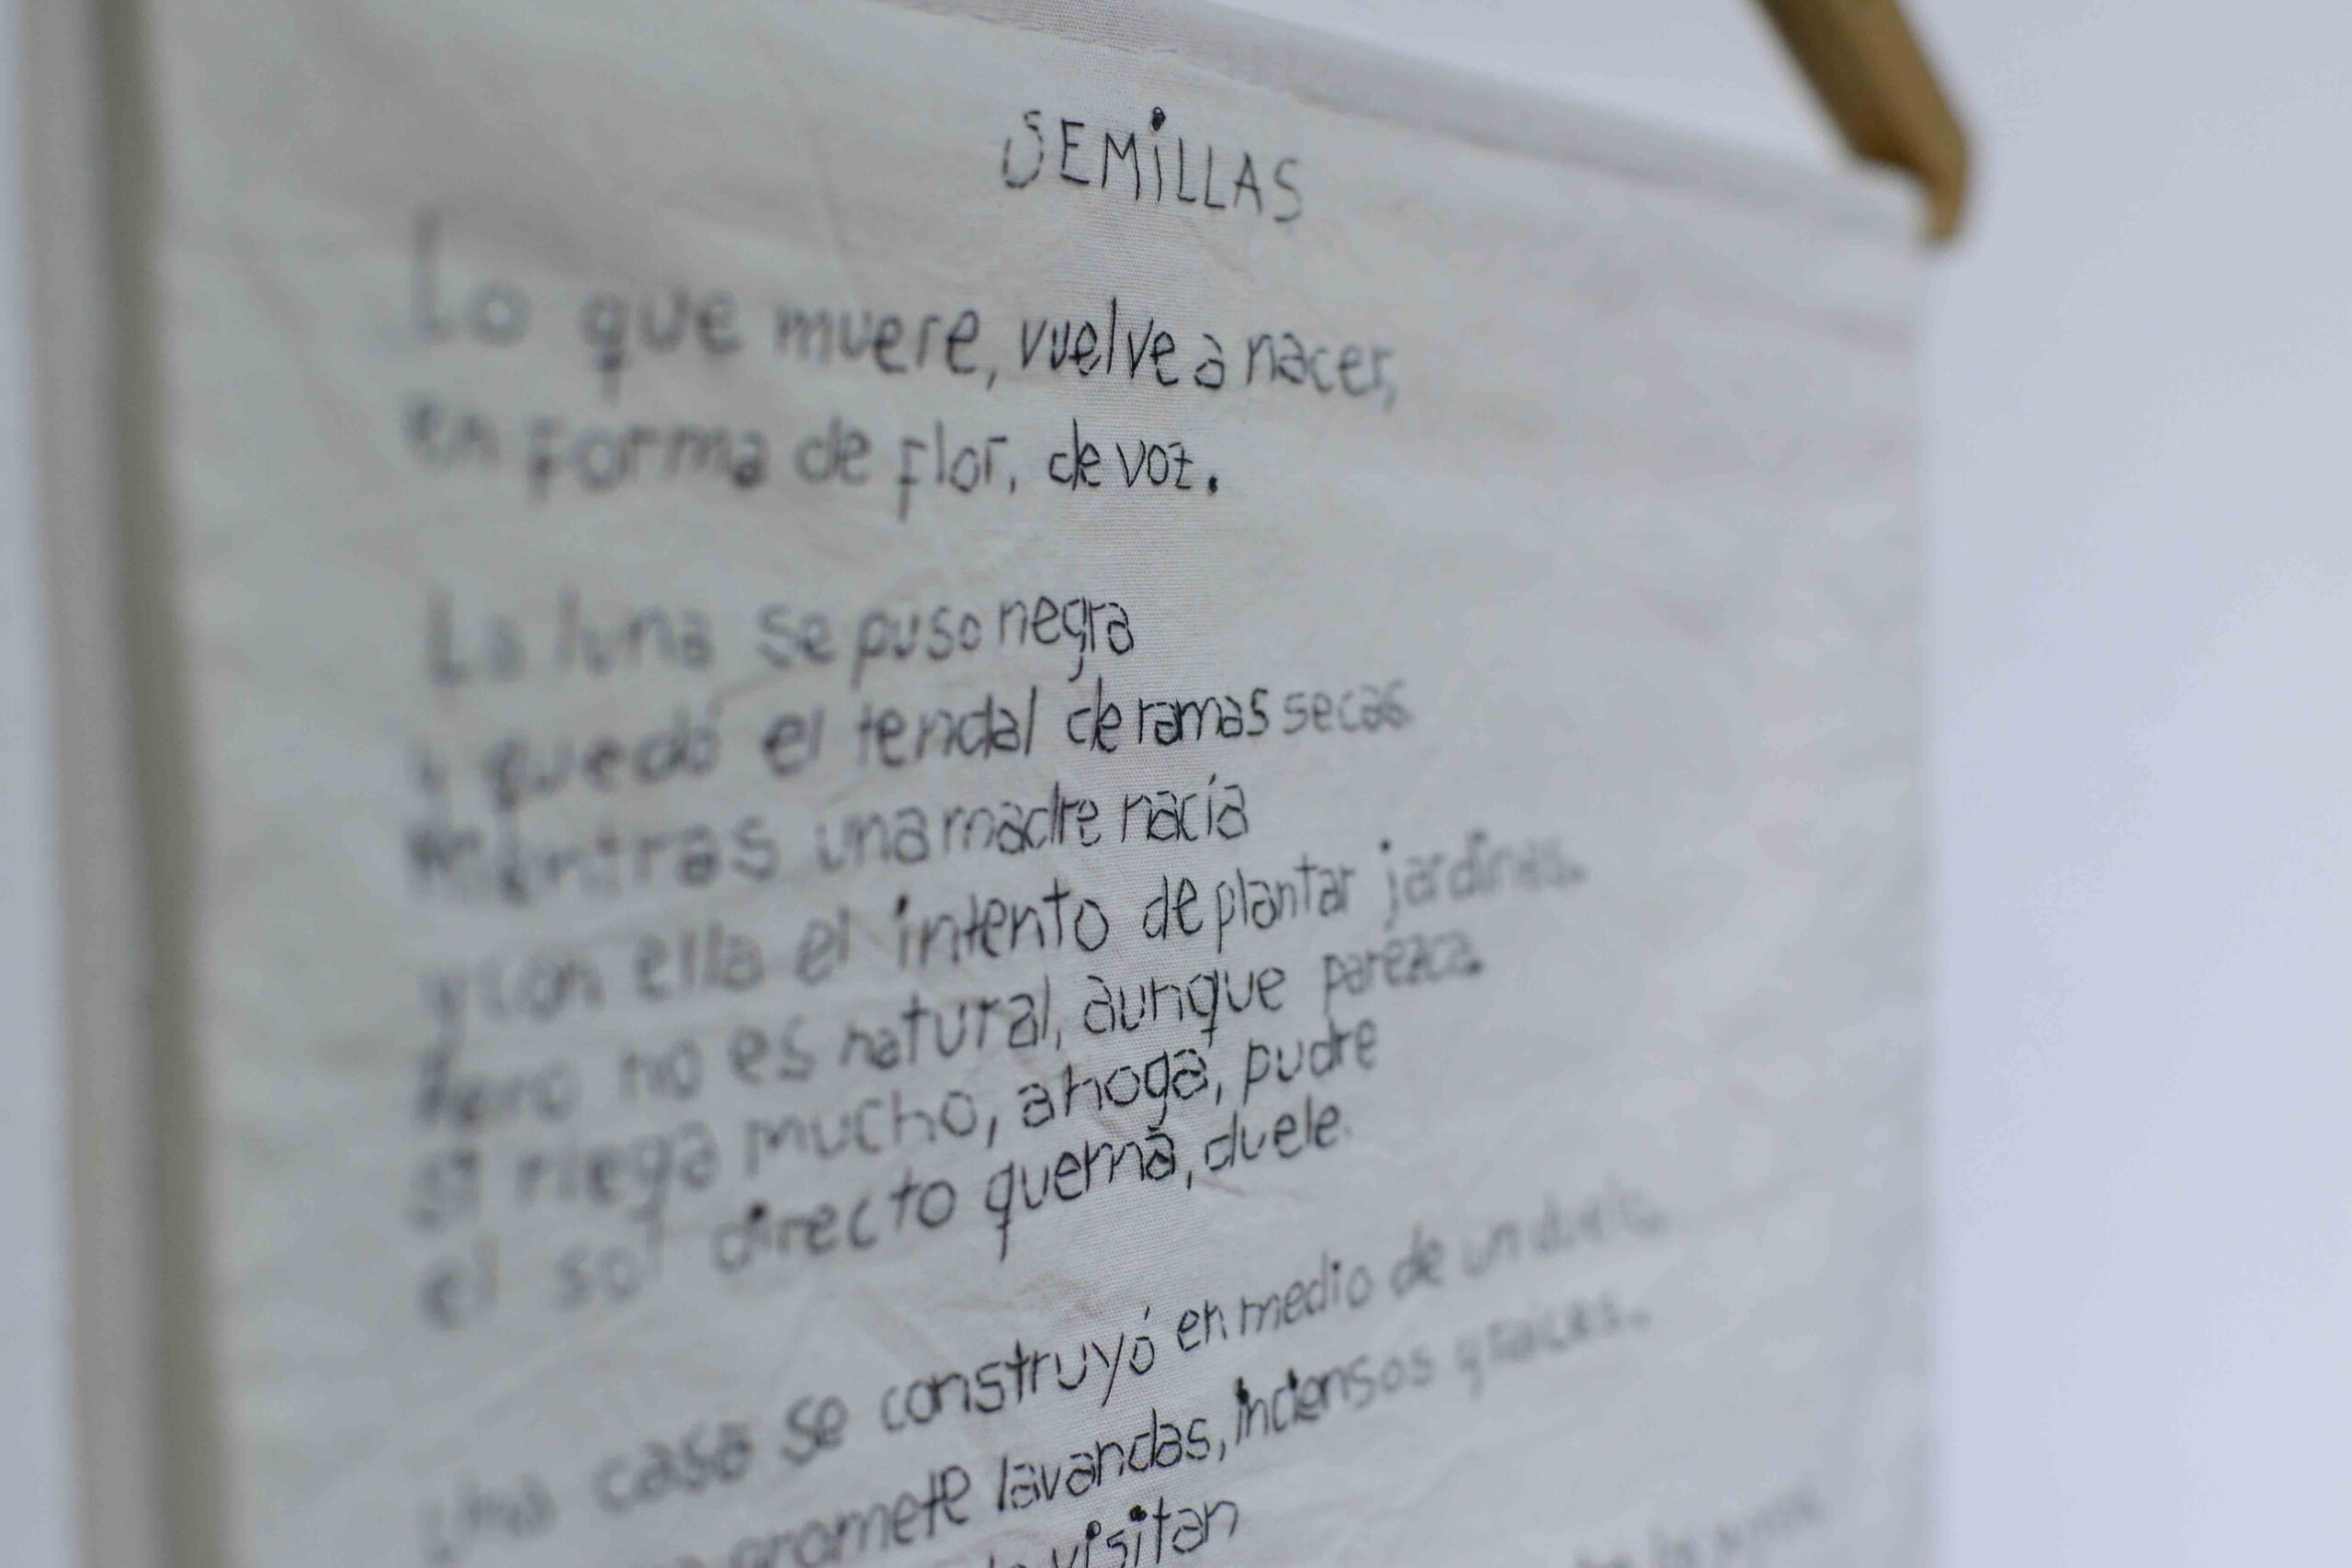 SEMiLLAS
Lo que muere, vuelve a nacer,
en forma de flor, de voz.
La luna se puso negra
y quedó el tendal de ramas secas
mientras una madre nacía
y con ella el intento de plantar jardines.
Pero no es natural, aunque parezca.
si riega mucho, ahoga, pudre
el sol directo quema, duele.
Una casa se construyó en medio de un duelo.
promete lavandas, inciensos y raíces.
visitan